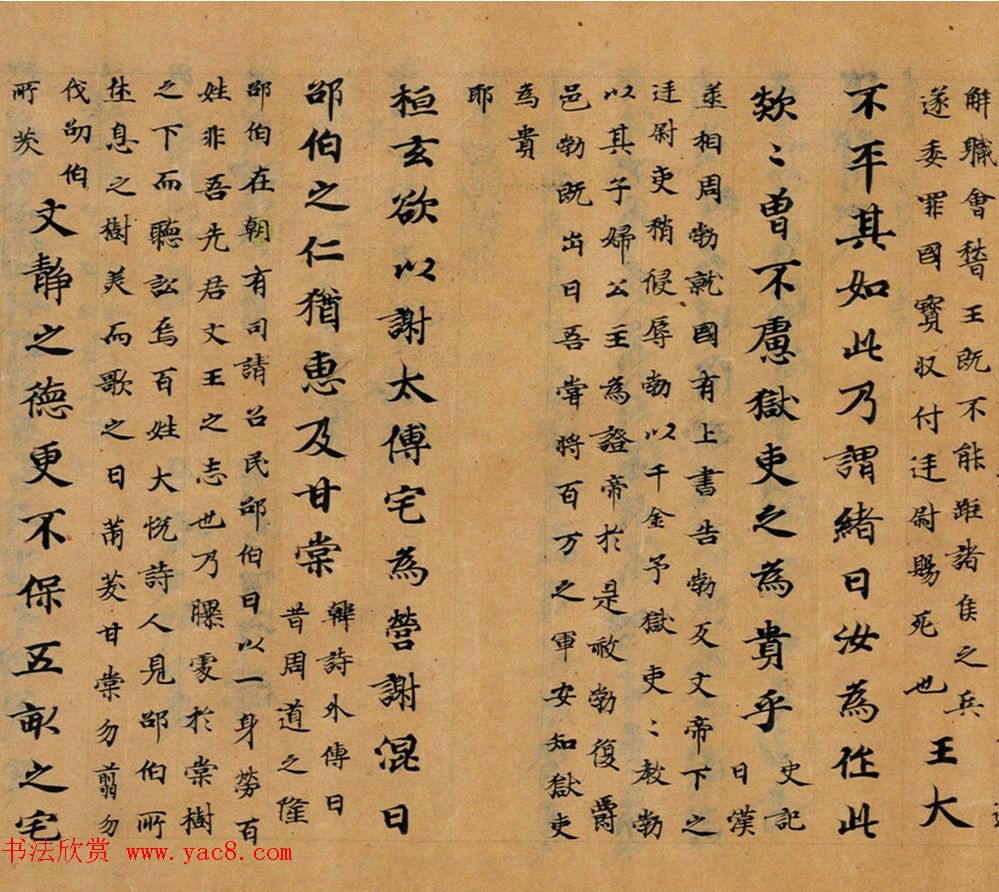 解職會稽王既不能距諸侯之兵
遂委罪國寶収付廷尉賜死也
王大
不平其如此乃謂緒曰汝為作此
欻〻曽不慮獄吏之為貴乎
史記
曰漢
並相周勃就國有上書告勃反文帝下之
廷尉吏稍侵辱勃以千金予獄吏〻教勃
以其子婦公主為證帝於是赦勃復爵
邑勃既出曰吾嘗將百万之軍安知獄吏
為貴
耶
桓玄欲以謝太傅宅為營謝混曰
邵伯之仁猶惠及甘棠
韓詩外傳曰
昔周道之隆
邵伯在朝有司請召民邵伯曰以一身勞百
姓非吾先君文王之志也乃曝處於棠樹
之下而聽訟焉百姓大恱詩人見邵伯所
休息之樹美而歌之曰莆茇甘棠勿翦勿
伐邵伯
所茇
文靜之德更不保五畝之宅
书法欣赏 www.yac8.com